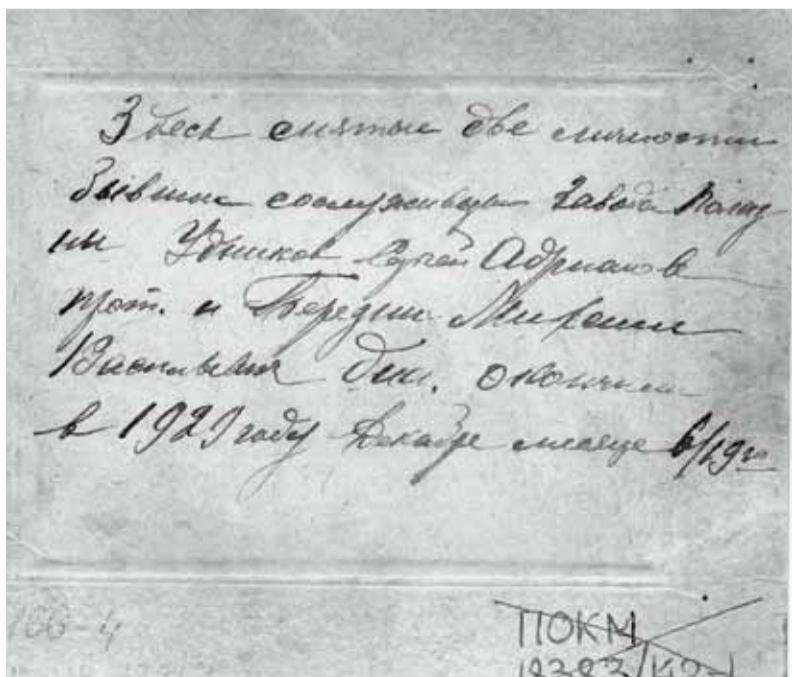 Здесь снятые две личности
бывшие сослуживцы завода Полаз-
ны Удников Сергей Адрианов
прот. и Бередин Михаил
Васильевич окончили
в 1929 году Декабре месяце 6/19го
166-4
ПОКМ
18383/142-1